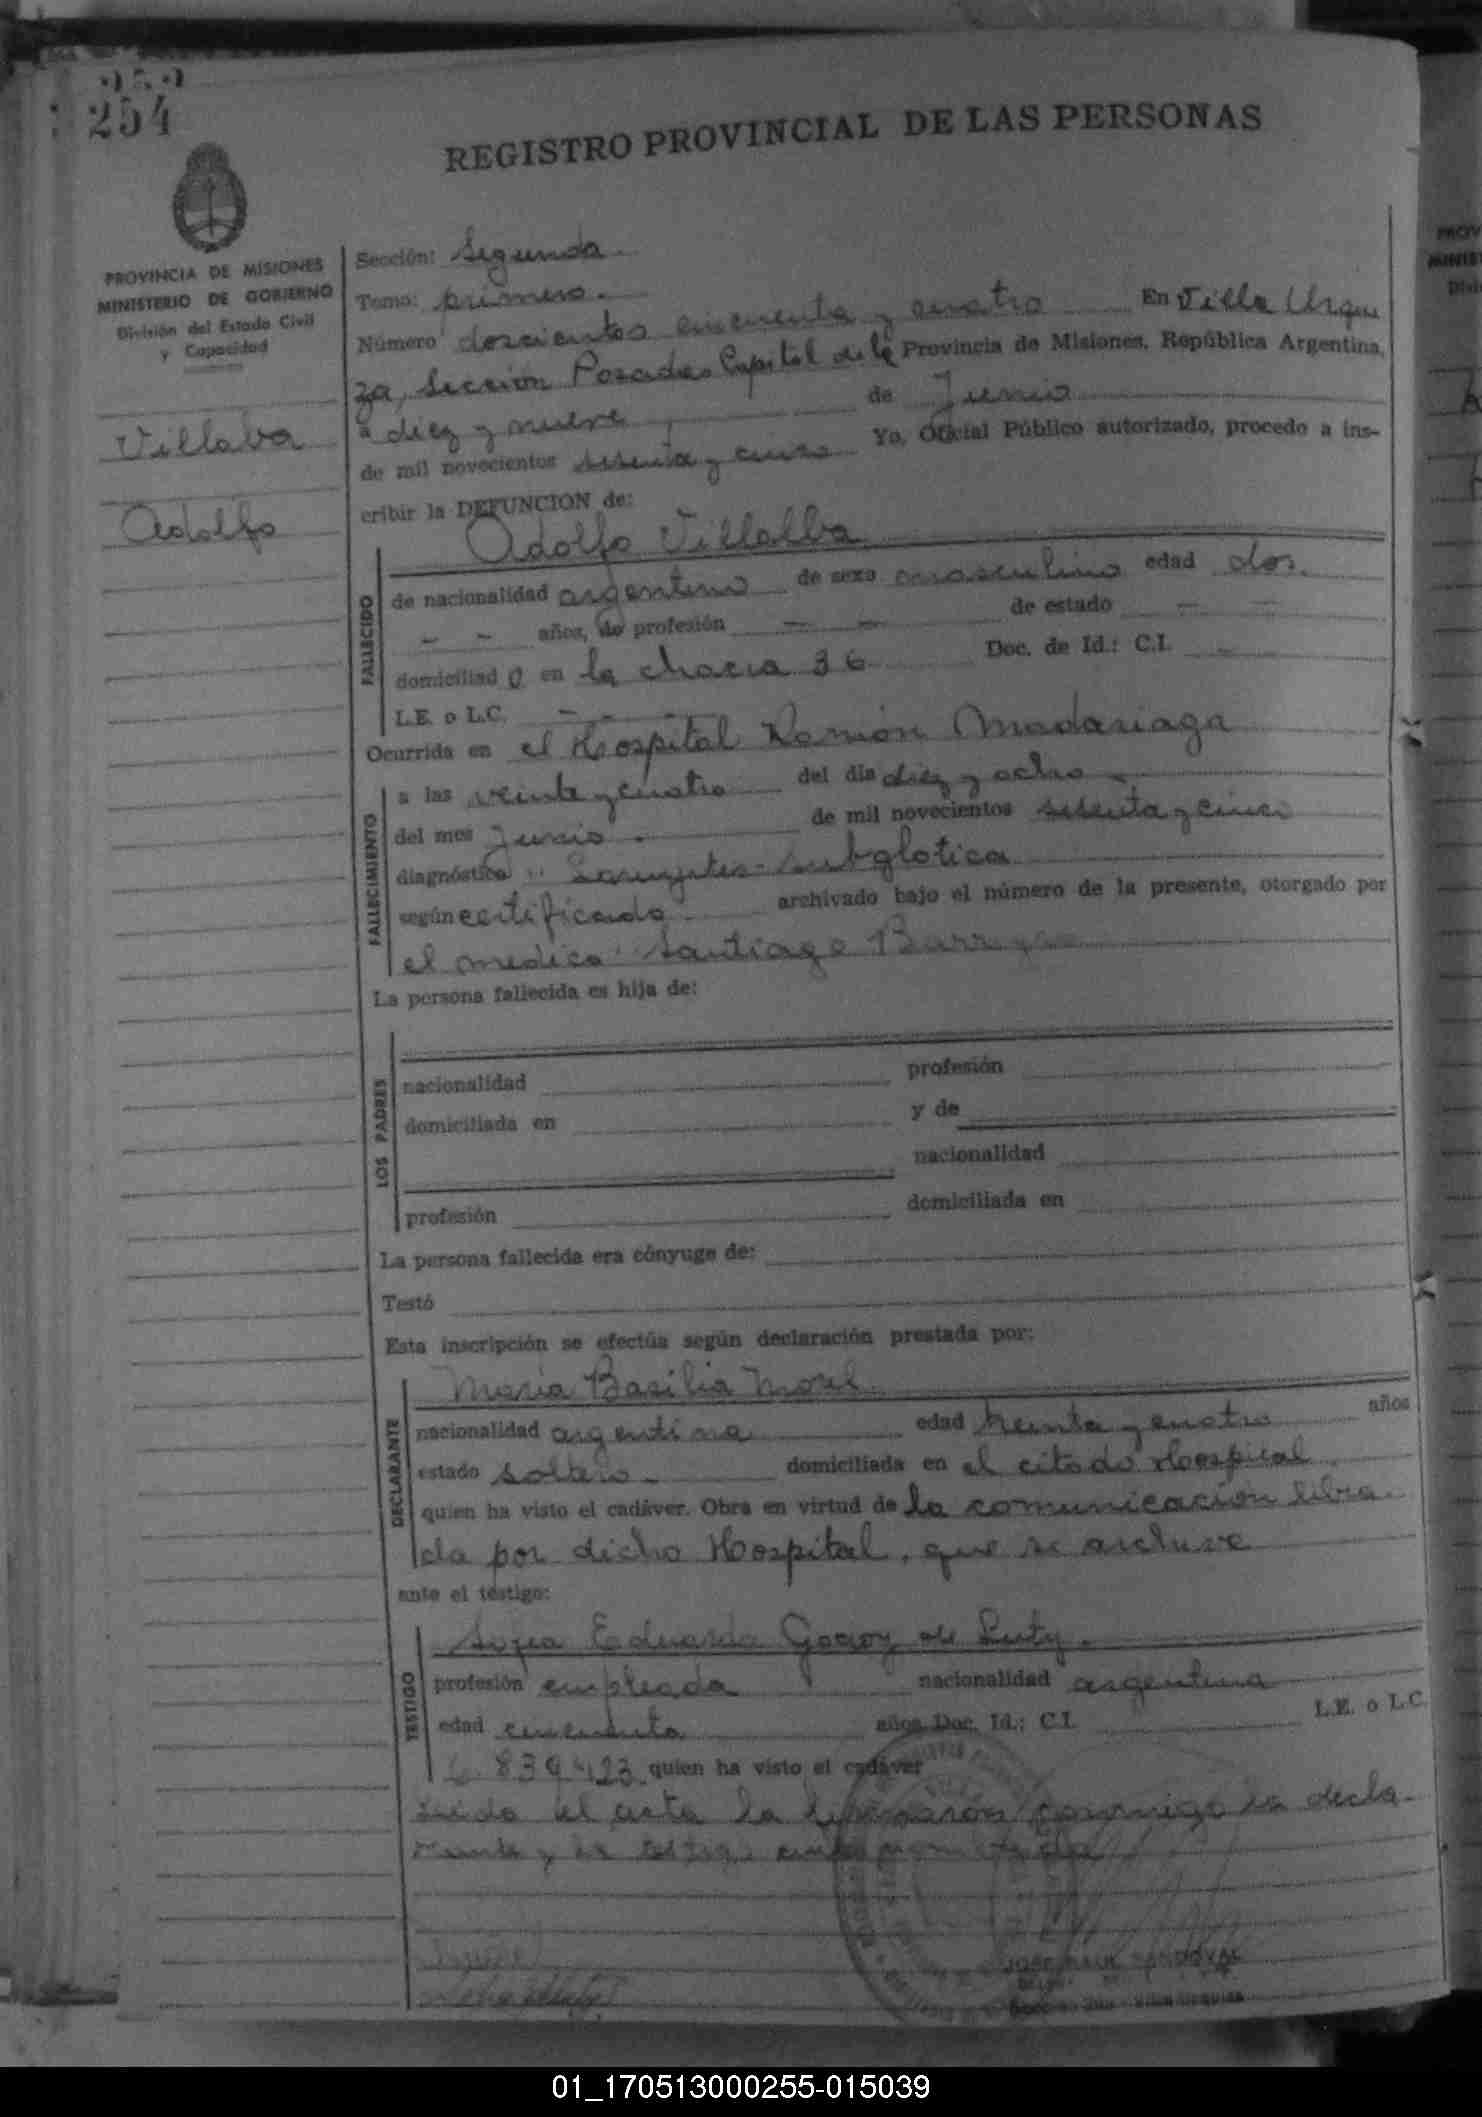 254
REGISTRO PROVINCIAL DE LAS PERSONAS
PROVINCIA DE MISIONES
MINISTERIO DE GOBIERNO
División del Estado Civil
y Capacidad
Villalva
Adolfo
Sección: Segunda.
Tomo: primero.
Número doscientos cincuenta y cuatro En Villa Urqui
za, Sección Posadas Capital de la Provincia de Misiones, República Argentina,
a diez y nueve de Junio
de mil novecientos sesenta y cinco Yo, Oficial Público autorizado, procedo a ins-
cribir la DEFUNCION de:
Adolfo Villalba
FALLECIDO
de nacionalidad argentino de sexo masculino edad dos.
— — años, de profesión — — de estado — —
domiciliado en la chacra 36 Doc. de Id.: C.I. —
L.E. o L.C. — —
Ocurrida en el Hospital Ramón Madariaga
FALLECIMIENTO
a las veinte y cuatro del día diez y ocho
del mes Junio. de mil novecientos sesenta y cinco
diagnóstico: Laringitis-subglotica
según certificado archivado bajo el número de la presente, otorgado por
el medico Santiago
La persona fallecida es hija de:
LOS PADRES
nacionalidad profesión
domiciliada en y de
nacionalidad
profesión domiciliada en
La persona fallecida era cónyuge de:
Testó
Esta inscripción se efectúa según declaración prestada por:
DECLARANTE
María Basilia Morel
nacionalidad argentina edad treinta y cuatro años
estado soltera domiciliada en el citado Hospital
quien ha visto el cadáver. Obra en virtud de la comunicación libra-
da por dicho Hospital, que se archive
ante el testigo:
TESTIGO
Eduarda Godoy de
profesión empleada nacionalidad argentina
edad cincuenta años Doc. Id.: C.I. L.E. o L.C.
6.839.423 quien ha visto el cadáver
el acta la conmigo la decla-
rante y la testigo
JOSE RAUL SANDOVAL
01_170513000255-015039